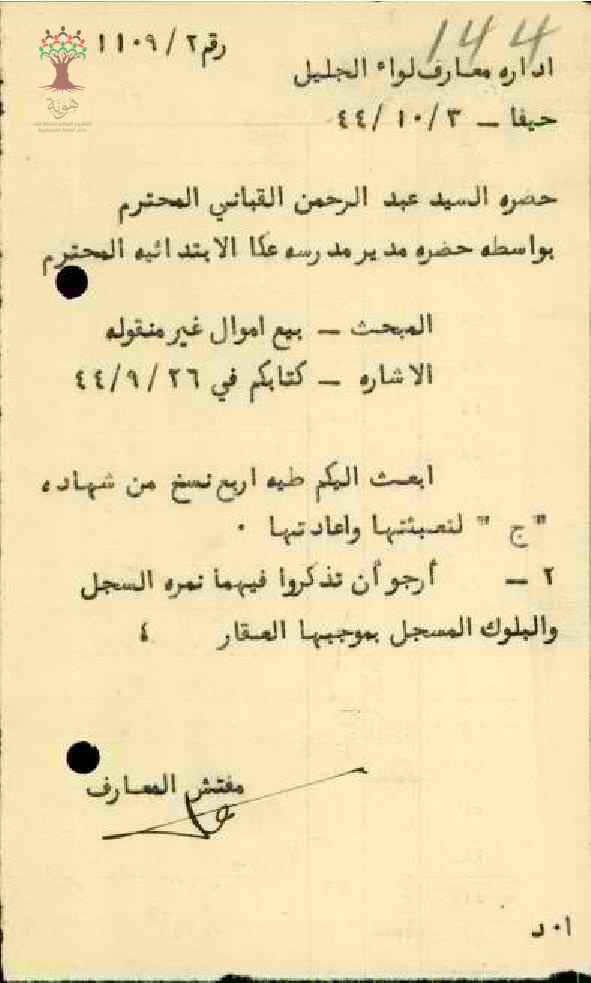 ١٤٤
رقم ٢/ ١١٠٩
اداره معارف لواء الجليل
حيفا — ٣/ ١٠/ ٤٤
هوية
حضره السيد عبد الرحمن القباني المحترم
بواسطه حضره مدير مدرسه عكا الابتدائيه المحترم
المبحث — بيع اموال غير منقوله
الاشاره — كتابكم في ٢٦/ ٩/ ٤٤
ابعث اليكم طيه اربع نسخ من شهاده
"ج" لتعبئتها واعادتها ٠
٢ — أرجو أن تذكروا فيهما نمره السجل
والبلوك المسجل بموجبها العقار ؛
مفتش المعارف
ا٠د